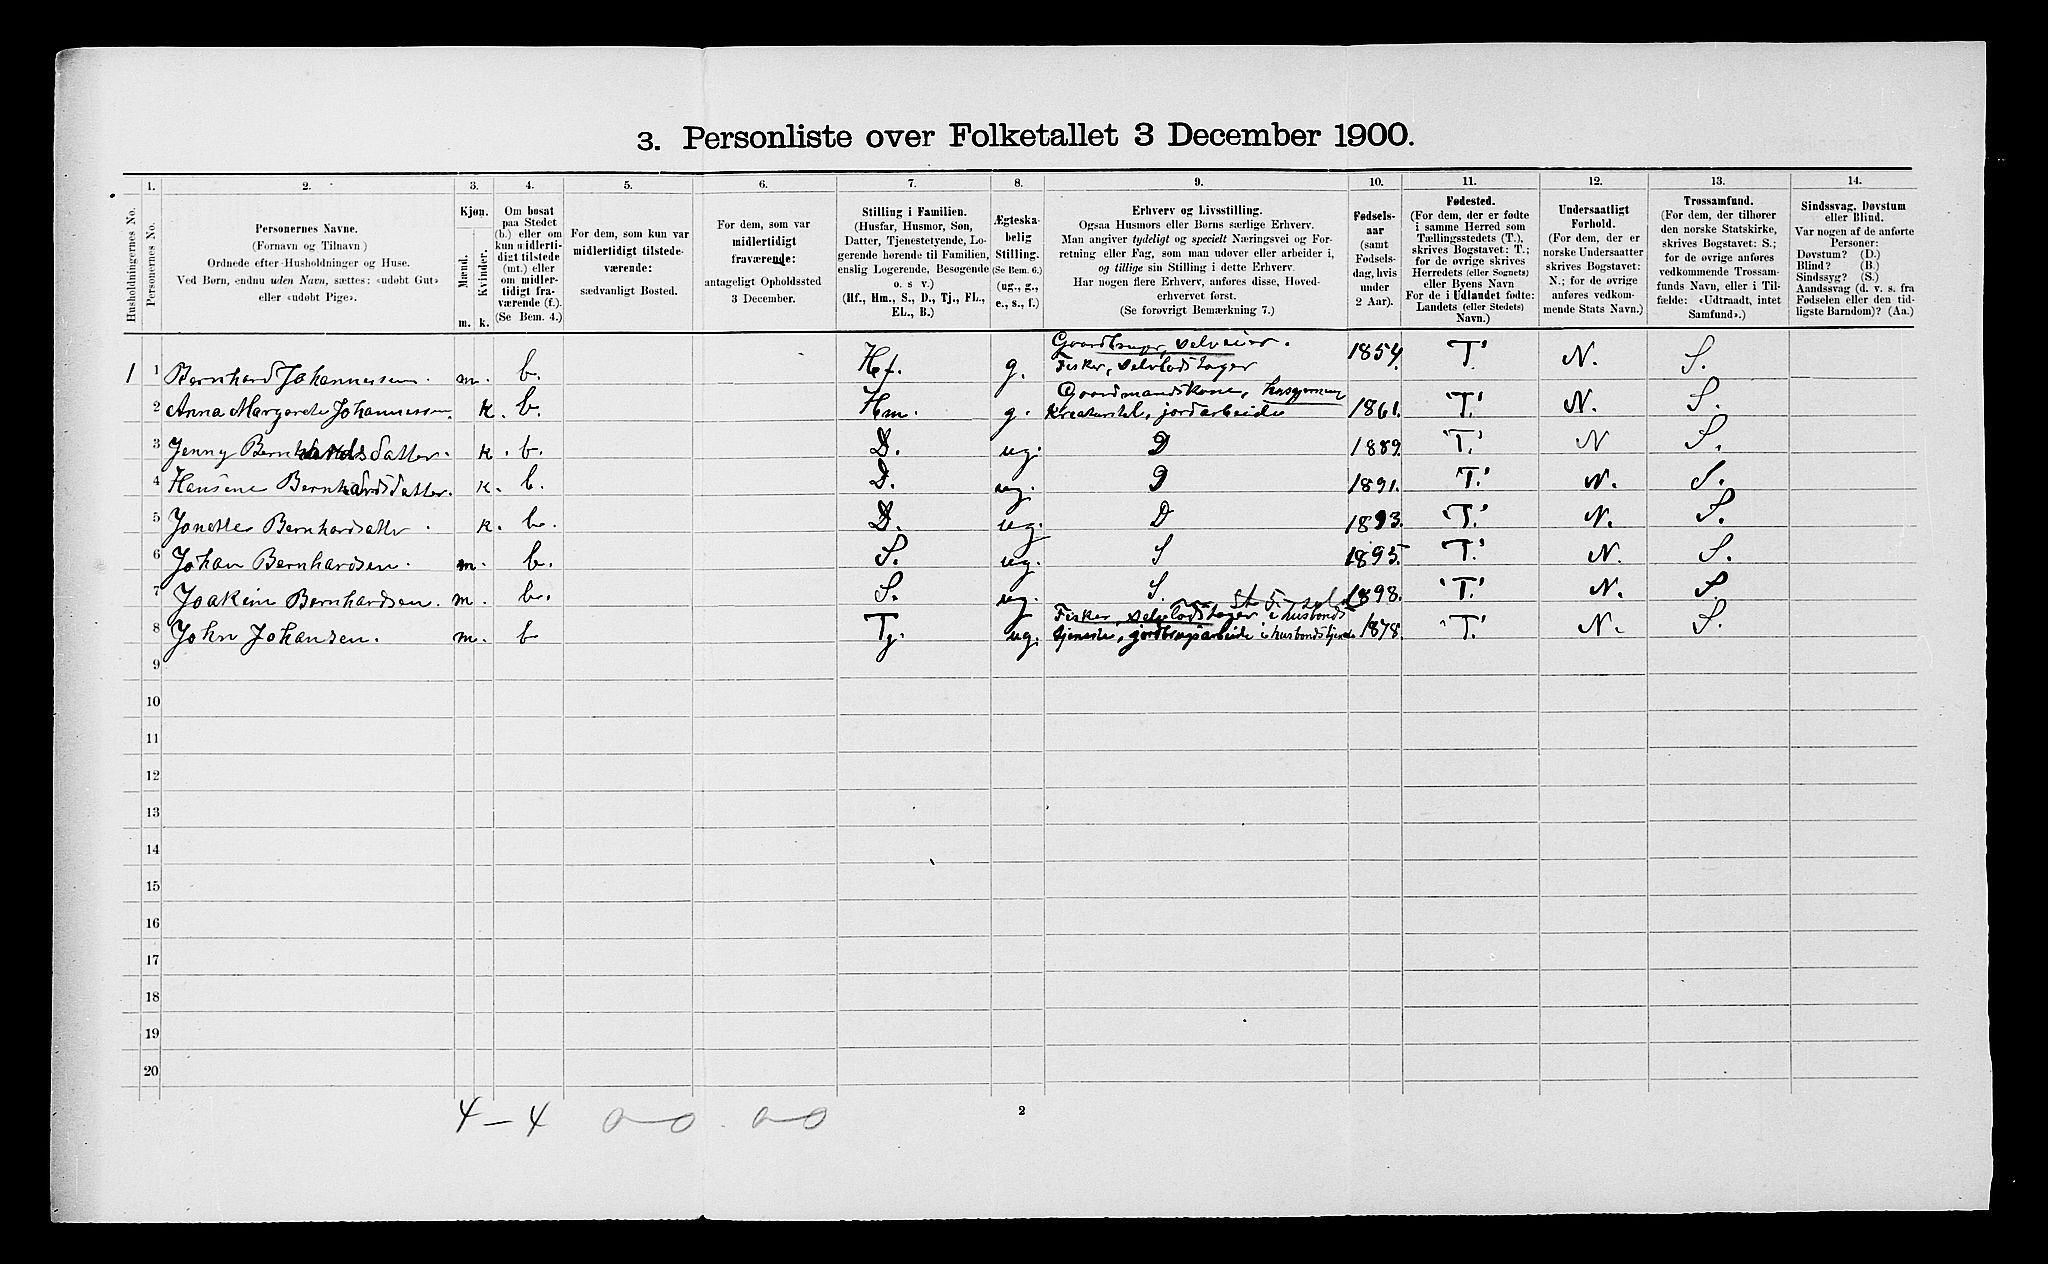 3. Personliste over Folketallet 3 December 1900.
1. 2. 3. 4. 5. 6. 7. 8. 9. 10. 11. 12. 13. 14.
Husholdningernes No.
Personernes No.
Personernes Navne.
(Fornavn og Tilnavn)
Ordnede efter Husholdninger og Huse.
Ved Børn, endnu uden Navn, sættes: «udøbt Gut»
eller «udøbt Pige».
Kjøn.
Mænd.
Kvinder.
m. k.
Om bosat
paa Stedet
(b.) eller om
kun midlerti-
digt tilstede
(mt.) eller
om midler-
tidigt fra-
værende (f.).
(Se Bem. 4.)
For dem, som kun var
midlertidigt tilstede-
værende:
sædvanligt Bosted.
For dem, som var
midlertidigt
fraværende:
antageligt Opholdssted
3 December.
Stilling i Familien.
(Husfar, Husmor, Søn,
Datter, Tjenestetyende, Lo-
gerende hørende til Familien,
enslig Logerende, Besøgende
o. s v.)
(Hf., Hm., S., D., Tj., FL.,
EL., B.)
Ægteska-
belig
Stilling.
(Se Bem. 6.)
(ug., g.,
e., s., f.)
Erhverv og Livsstilling.
Ogsaa Husmors eller Børns særlige Erhverv.
Man angiver tydeligt og specielt Næringsvei og For-
retning eller Fag, som man udøver eller arbeider i,
og tillige sin Stilling i dette Erhverv.
Har nogen flere Erhverv, anføres disse, Hoved-
erhvervet først.
(Se forøvrigt Bemærkning 7.)
Fødsels-
aar
(samt
Fødsels-
dag, hvis
under
2 Aar).
Fødested.
(For dem, der er fødte
i samme Herred som
Tællingsstedets (T.),
skrives Bogstavet: T.;
for de øvrige skrives
Herredets (eller Sognets)
eller Byens Navn
For de i Udlandet fødte:
Landets (eller Stedets)
Navn.)
Undersaatligt
Forhold.
(For dem, der er
norske Undersaatter
skrives Bogstavet:
N.; for de øvrige
anføres vedkom-
mende Stats Navn.)
Trossamfund.
(For dem, der tilhører
den norske Statskirke,
skrives Bogstavet: S.;
for de øvrige anføres
vedkommende Trossam-
funds Navn, eller i Til-
fælde: «Udtraadt, intet
Samfund».)
Sindssvag, Døvstum
eller Blind.
Var nogen af de anførte
Personer:
Døvstum? (D.)
Blind? (B.)
Sindssyg? (S.)
Aandssvag (d. v. s. fra
Fødselen eller den tid-
ligste Barndom)? (Aa.)
Gaardbruger, selveier.
1 1 Bernhard Johannessen. m. b. Hf. g. Fisker, selvlodstager 1854. T. N. S.
Gaardmandskone, husgjerning
2 Anna Margrete Johannessen. k. b. Hm. g. Kreaturstel, jordarbeide 1861. T. N. S.
3 Jenny Bernhardsdatter. k. b. D. ug. D 1889. T. N S.
4 Hansine Bernhardsdatter. k. b. D. ug. D 1891. T. N. S.
5 Jonette Bernhardsatter. k. b. D. ug. D 1893. T. N. S.
6 Johan Bernhardsen. m. b. S. ug. S 1895. T. N. S.
7 Joakim Bernhardsen. m. b. S. ug. S. 1898. T. N. S.
Fisker, selvlodstager i husbonds
8 John Johansen. m. b Tj. ug. tjeneste, jordbrugsarbeide i husbonds tjeneste 1878. T. N. S.
9
10
11
12
13
14
15
16
17
18
19
20
4 – 4 0–0 0–0
2